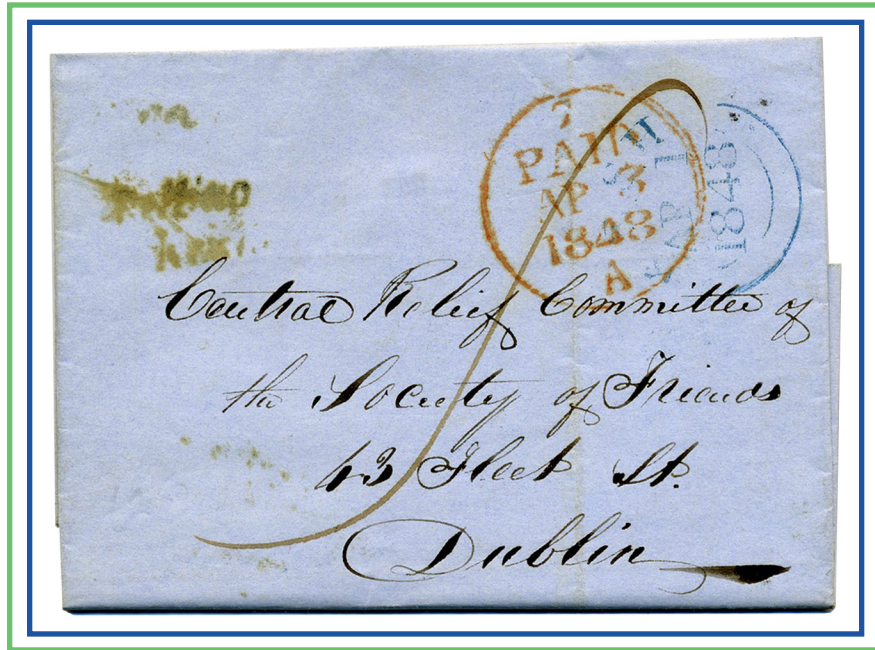 7
PAID
AP 3
1848
A
1848
Central Relief Committee of
the Society of Friends
43 Fleet St.
Dublin